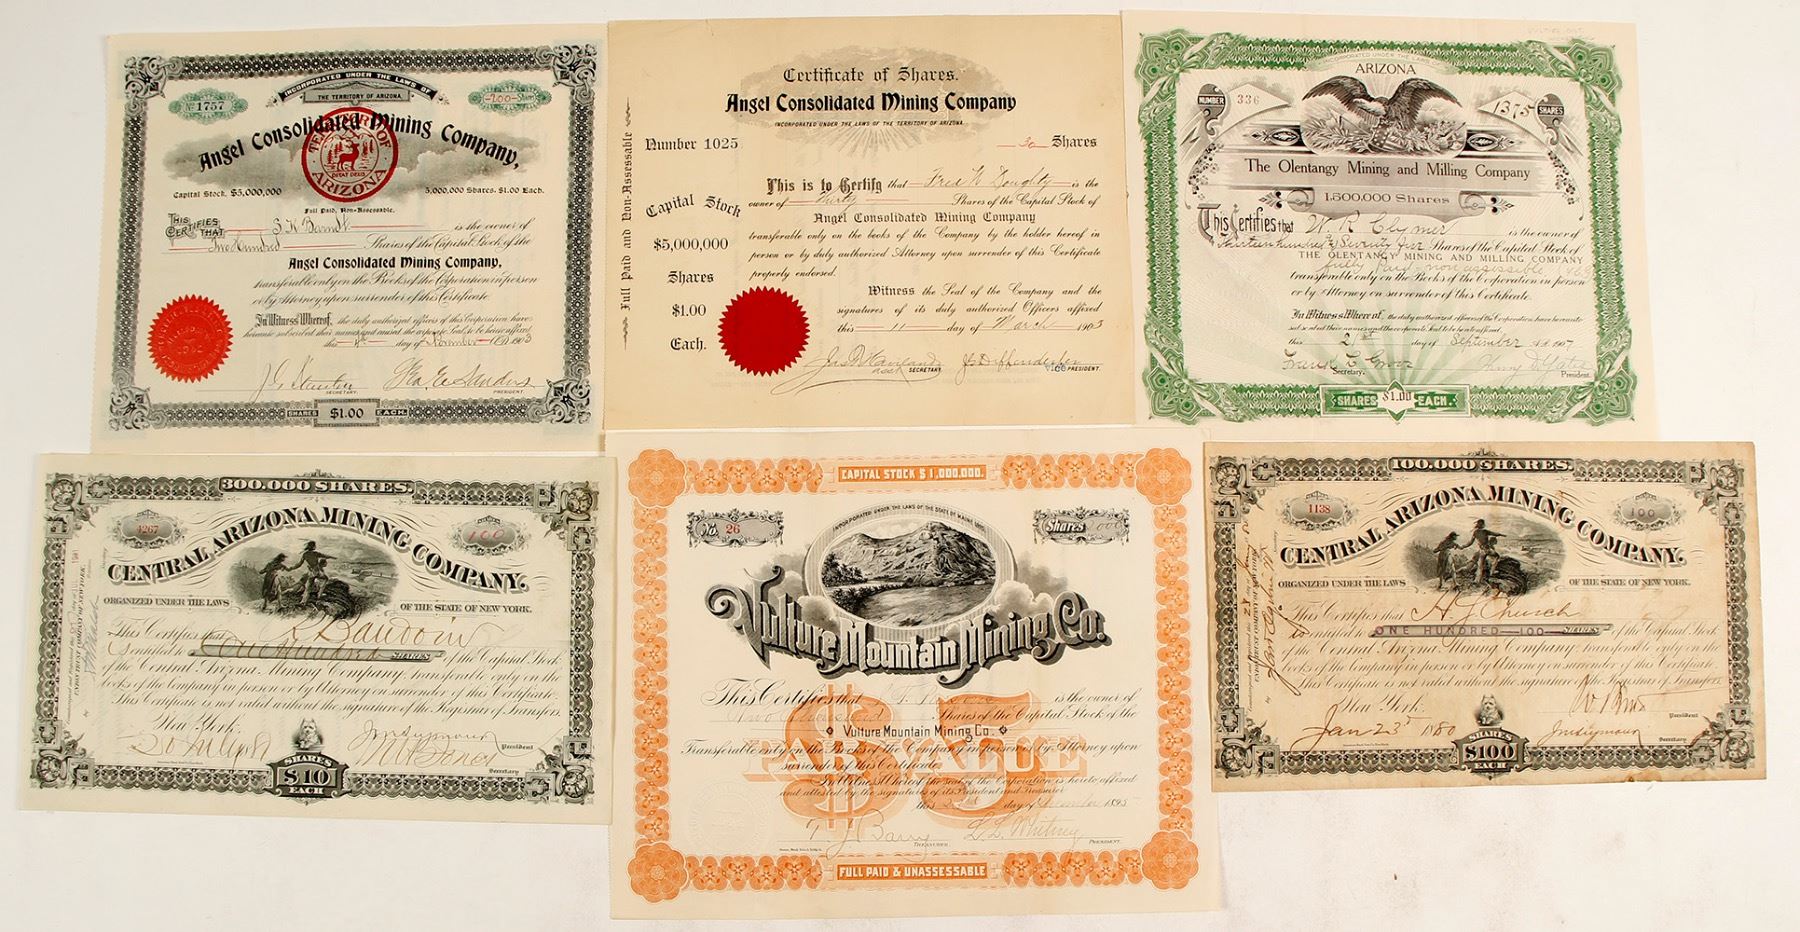 INCORPORATED UNDER THE LAWS OF
THE TERRITORY OF ARIZONA.
No 1757
-200- Shares
Angel Consolidated Mining Company,
TERRITORY OF ARIZONA
DITAT DEUS
Capital Stock, $5,000,000
5,000,000 Shares, $1.00 Each.
Full Paid, Non-Assessable.
THIS CERTIFIES THAT S. K. Barndt is the owner of
Two Hundred Shares of the Capital Stock of the
Angel Consolidated Mining Company,
transferable only on the Books of the Corporation in person
or by Attorney upon surrender of this Certificate
In Witness Whereof, the duly authorized officers of this Corporation have
hereunto subscribed their names and caused the corporate Seal to be hereto affixed
this 4th day of November A.D. 1903
Geo E Sanders
SECRETARY.
PRESIDENT.
SHARES $1.00 EACH.
Certificate of Shares.
Angel Consolidated Mining Company
INCORPORATED UNDER THE LAWS OF THE TERRITORY OF ARIZONA.
Number 1025
30 Shares
Full Paid and Non-Assessable
Capital Stock
$5,000,000
Shares
$1.00
Each.
This is to Certify that Fred W Doughty is the
owner of Thirty Shares of the Capital Stock of
Angel Consolidated Mining Company
transferable only on the books of the Company by the holder hereof in
person or by duly authorized Attorney upon surrender of this Certificate
properly endorsed.
Witness the Seal of the Company and the
signatures of its duly authorized Officers affixed
this 11 day of March 1903
Asst SECRETARY.
Vice PRESIDENT.
ARIZONA
NUMBER 336
1375 SHARES
The Olentangy Mining and Milling Company
1,500,000 Shares
This Certifies that W. R. Clymer is the owner of
Thirteen hundred & Seventy five Shares of the Capital Stock of
THE OLENTANGY MINING AND MILLING COMPANY
fully paid non assessible
transferable only on the Books of the Corporation in person
or by Attorney on surrender of this Certificate.
In Witness Whereof, the duly authorized officers of this Corporation have hereunto
subscribed their names and the corporate Seal to be hereto affixed.
this 21st day of September A.D. 1907
Secretary.
President.
SHARES $1.00 EACH.
300,000 SHARES.
4267
100
CENTRAL ARIZONA MINING COMPANY.
ORGANIZED UNDER THE LAWS OF THE STATE OF NEW YORK.
This Certifies that R Baudoin
is entitled to One Hundred SHARES of the Capital Stock
of the Central Arizona Mining Company, transferable only on the
books of the Company in person or by Attorney on surrender of this Certificate.
This Certificate is not valid without the signature of the Registrar of Transfers.
New York,
30 July 81
Jm Seymour President
Secretary
SHARES $10 EACH
CAPITAL STOCK $1,000,000.
INCORPORATED UNDER THE LAWS OF THE STATE OF MAINE
No. 26
Shares
Vulture Mountain Mining Co.
This Certifies that is the owner of
Shares of the Capital Stock of the
Vulture Mountain Mining Co.
Transferable only on the Books of the Company in person or by Attorney upon
surrender of this Certificate
In Witness Whereof the seal of the Corporation is hereto affixed
and attested by the signatures of its President and Treasurer
this 2nd day of December 1895
$5
PAR VALUE
T J Barry TREASURER.
L. L. Whitney PRESIDENT.
FULL PAID & UNASSESSABLE
100,000 SHARES.
1138
100
CENTRAL ARIZONA MINING COMPANY.
ORGANIZED UNDER THE LAWS OF THE STATE OF NEW YORK.
This Certifies that A. J. Church
is entitled to ONE HUNDRED-100- SHARES of the Capital Stock
of the Central Arizona Mining Company, transferable only on the
books of the Company in person or by Attorney on surrender of this Certificate.
This Certificate is not valid without the signature of the Registrar of Transfers.
New York,
Jan 23 1880
President
Jm Seymour
Secretary
SHARES $100 EACH